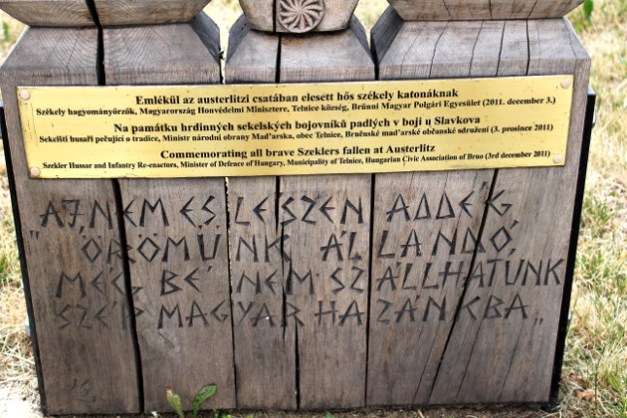 Emlékül az austerlitzi csatában elesett hős székely katonáknak
Székely hagyományőrzők, Magyarország Honvédelmi Minisztere, Telnice község, Brünni Magyar Polgári Egyesület (2011. december 3.)
Na památku hrdinných sekelských bojovníků padlých v boji u Slavkova
Sekelští husaři pečující o tradice, Ministr národní obrany Maďarska, obec Telnice, Brněnské maďarské občanské sdružení (3. prosince 2011)
Commemorating all brave Szeklers fallen at Austerlitz
Szekler Hussar and Infantry Re-enactors, Minister of Defence of Hungary, Municipality of Telnice, Hungarian Civic Association of Brno (3rd december 2011)
AJ, NEM ES LESZEN ADDÉG
„ÖRÖMÜNK ÁLLANDÓ,
MÉG BÉ NEM SZÁLLHATUNK
SZÉP MAGYAR HAZÁNKBA"